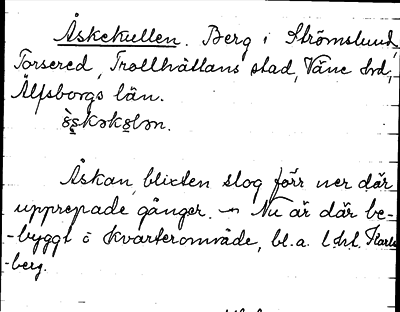 Åskekullen. Berg i Strömslund,
Torsered, Trollhättans stad, Väne hd,
Älfsborgs län.
Åskan, blixten slog förr ner där
upprepade gånger. — Nu är där be-
-byggt o kvarterområde, bl.a. l.hl. Karls
-berg.